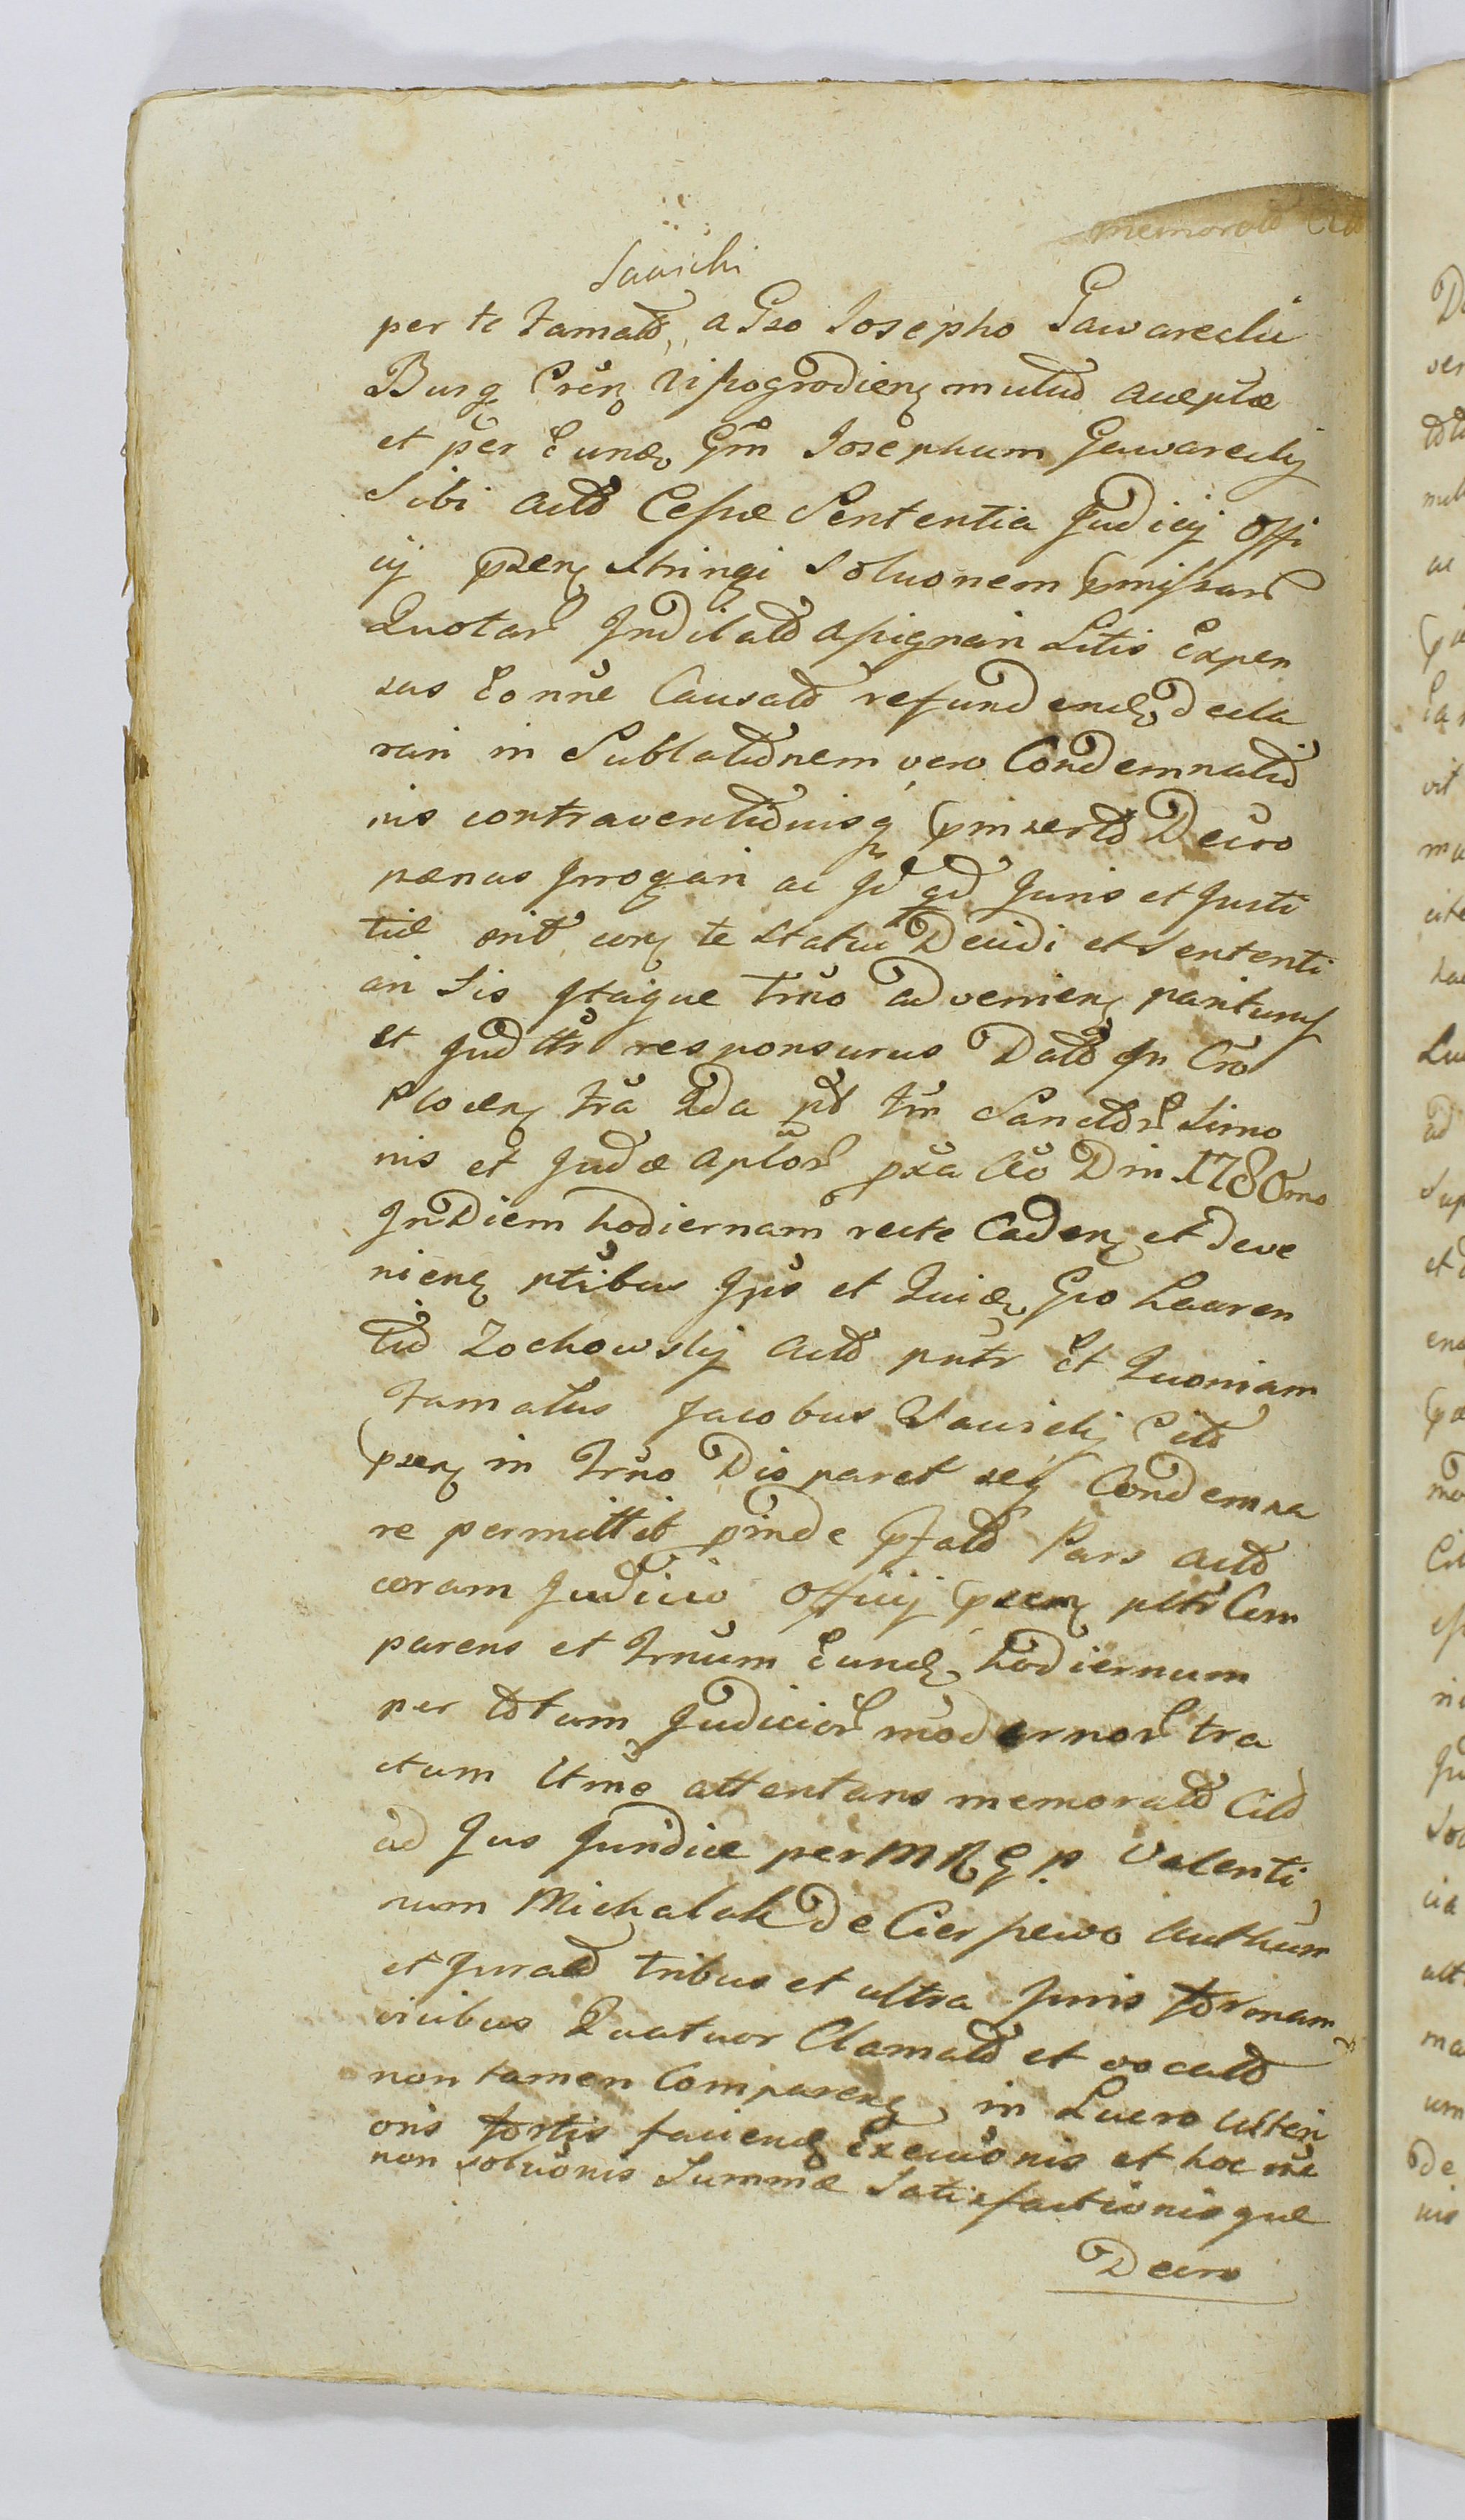 memorato
Sawicki
per te Famato, a Gso Josepho Gawarecki
Burg Cren Wissogrodien mutuo acceptæ
et per Eund Gm Josephum Gawarecky
Sibi acto Cessæ Sententia Judicij Offi
cij psen stringi Soluonem pmissar
Quotar Judicato assignari Litis Expen
sas Eonne Causato refundend decla
rari in Sublationem vero Condemnatio
nis contraventionisq pmserto Decro
pænas Jrrogari ac Jd qd Juris et Justi
tiæ erit con te Statui Decidi et Sententi
ari Sis Jtaque Trno advenien pariturus
et Juditr responsurus Dato in Cro
Plocen fra 2da pd fm Sanctor Simo
nis et Judæ Aplor pxa Ao Dni 1780mo
Jn Diem hodiernam recte Caden et deve
nien ptibus Jpis et Quid Gso Lauren
tio Zochowsky Acto pntr Et Quoniam
Famatus Jacobus Sawicky Cito
psen in Trno Dis paret seq Condemna
re permittit pinde pfato Pars acto
coram Judicio Officij psen pltr Com
parens et Trnum Eund hodiernum
per totum Judicior modernor tra
ctum Utmo attentans memorato Cito
ad Jus Juridice per M R G P. Valenti
num Michalak de Cierpewo Authum
et Jurato tribus et ultra Juris formam
vicibus Quatuor Clamato et vocato
non tamen Comparen, in Lucro Ulteri
oris fortis faciend Execuonis et hoc rne
non soluonis Summæ Satisfactionisque
Decro